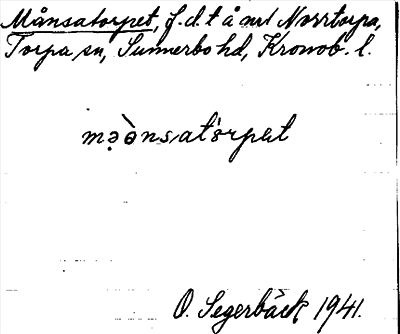 Månsatorpet, f.d.t å nr1 Norrtorpa,
Torpa sn, Sunnerbo hd, Kronob. l.
mə̣ə̀nsatòrpət
O. Segerbäck 1941.